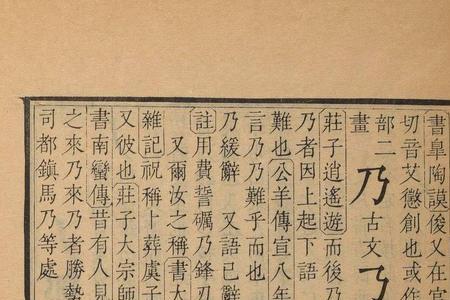 書皐陶謨俊乂在官
切音艾懲創也或作
部二
畫
乃古文
莊子逍遙遊而後乃
乃者因上起下語
難也公羊傳宣八年
言乃乃難乎而也
乃緩辭 又語已辭
註用費誓礪乃鋒刃
又爾汝之稱書大
雜記祝稱卜葬虞子
又彼也莊子大宗師
書南蠻傳昔有人見
之來乃來乃者勝勢
司都鎮馬乃等處